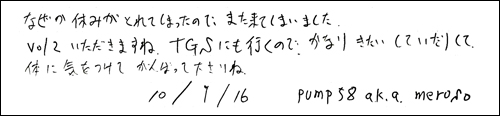 なぜか休みがとれてしまったので、また来てしまいました.
vol2 いただきますね. TGSにも行くので、かなりきたいしていたりして.
体に気をつけてがんばって下さいね.
10/9/16 pump58 a.k.a. meroso